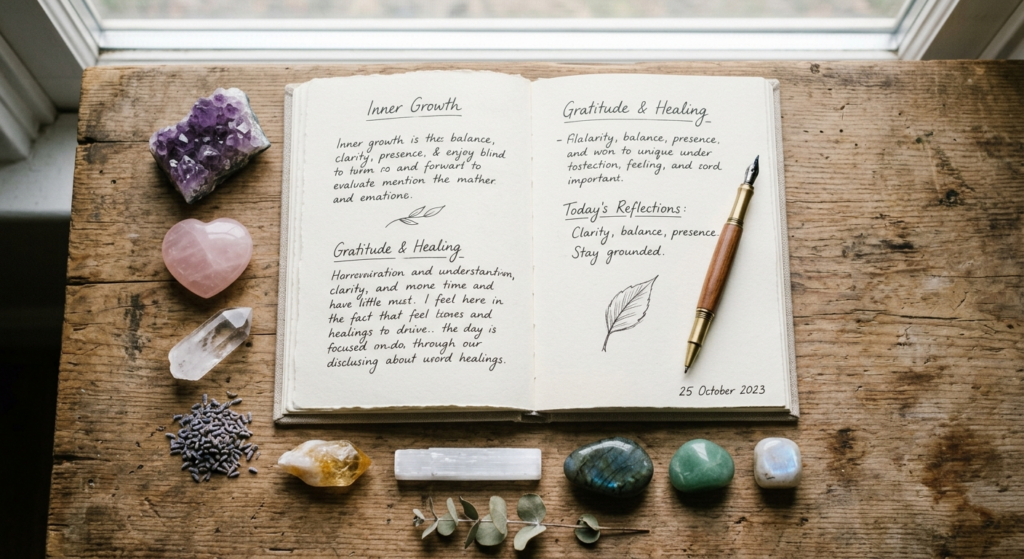 Inner Growth
Inner growth is the balance,
clarity, presence, & enjoy blind
to turn ro and forwart to
evaluate mention the mather
and emotione.
Gratitude & Healing
and understantivn,
clarity, and mone time and
have little must. I feel here in
the fact that feel and
healings to the day is
focused on-do, through our
disclusing about word healings.
Gratitude & Healing
- Flalarity, balance, presence.
and won to unique under
tostection, feeling, and
important.
Today's Reflections:
Clarity, balance, presence.
Stay grounded.
25 October 2023